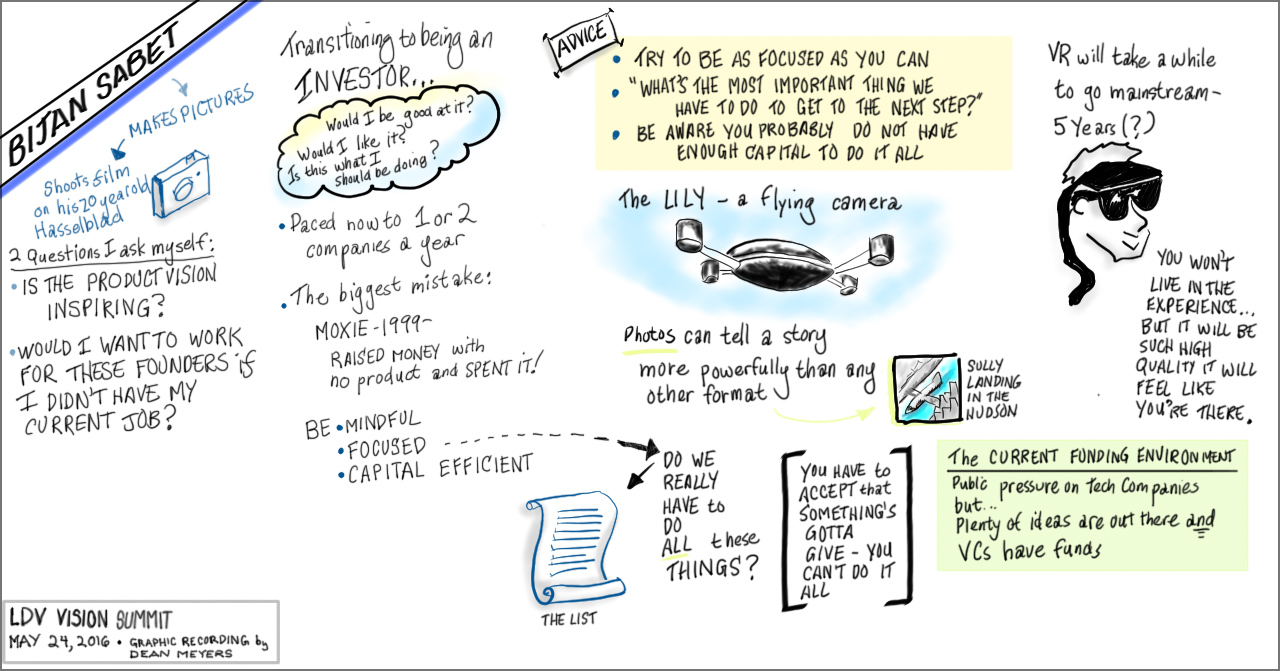 BIJAN SABET
MAKES PICTURES
Shoots film
on his 20 year old
Hasselblad
2 Questions I ask myself:
• IS THE PRODUCT VISION
INSPIRING?
• WOULD I WANT TO WORK
FOR THESE FOUNDERS if
I DIDN'T HAVE MY
CURRENT JOB?
Transitioning to being an
INVESTOR...
Would I be good at it?
Would I like it?
Is this what I
should be doing?
• Paced now to 1 or 2
companies a year
• The biggest mistake:
MOXIE-1999-
RAISED MONEY with
no product and SPENT IT!
BE • MINDFUL
• FOCUSED
• CAPITAL EFFICIENT
THE LIST
DO WE
REALLY
HAVE to
DO
ALL these
THINGS?
YOU HAVE to
ACCEPT that
SOMETHING'S
GOTTA
GIVE - YOU
CAN'T DO IT
ALL
ADVICE
• TRY TO BE AS FOCUSED AS YOU CAN
• "WHAT'S THE MOST IMPORTANT THING WE
HAVE TO DO TO GET TO THE NEXT STEP?"
• BE AWARE YOU PROBABLY DO NOT HAVE
ENOUGH CAPITAL TO DO IT ALL
The LILY - a flying camera
Photos can tell a story
more powerfully than any
other format
SULLY
LANDING
IN THE
HUDSON
VR will take a while
to go mainstream-
5 Years(?)
YOU WON'T
LIVE IN THE
EXPERIENCE...
BUT IT WILL BE
SUCH HIGH
QUALITY IT WILL
FEEL LIKE
YOU'RE THERE.
The CURRENT FUNDING ENVIRONMENT
Public pressure on Tech Companies
but...
Plenty of ideas are out there and
VCs have funds
LDV VISION SUMMIT
MAY 24, 2016 • GRAPHIC RECORDING by
DEAN MEYERS